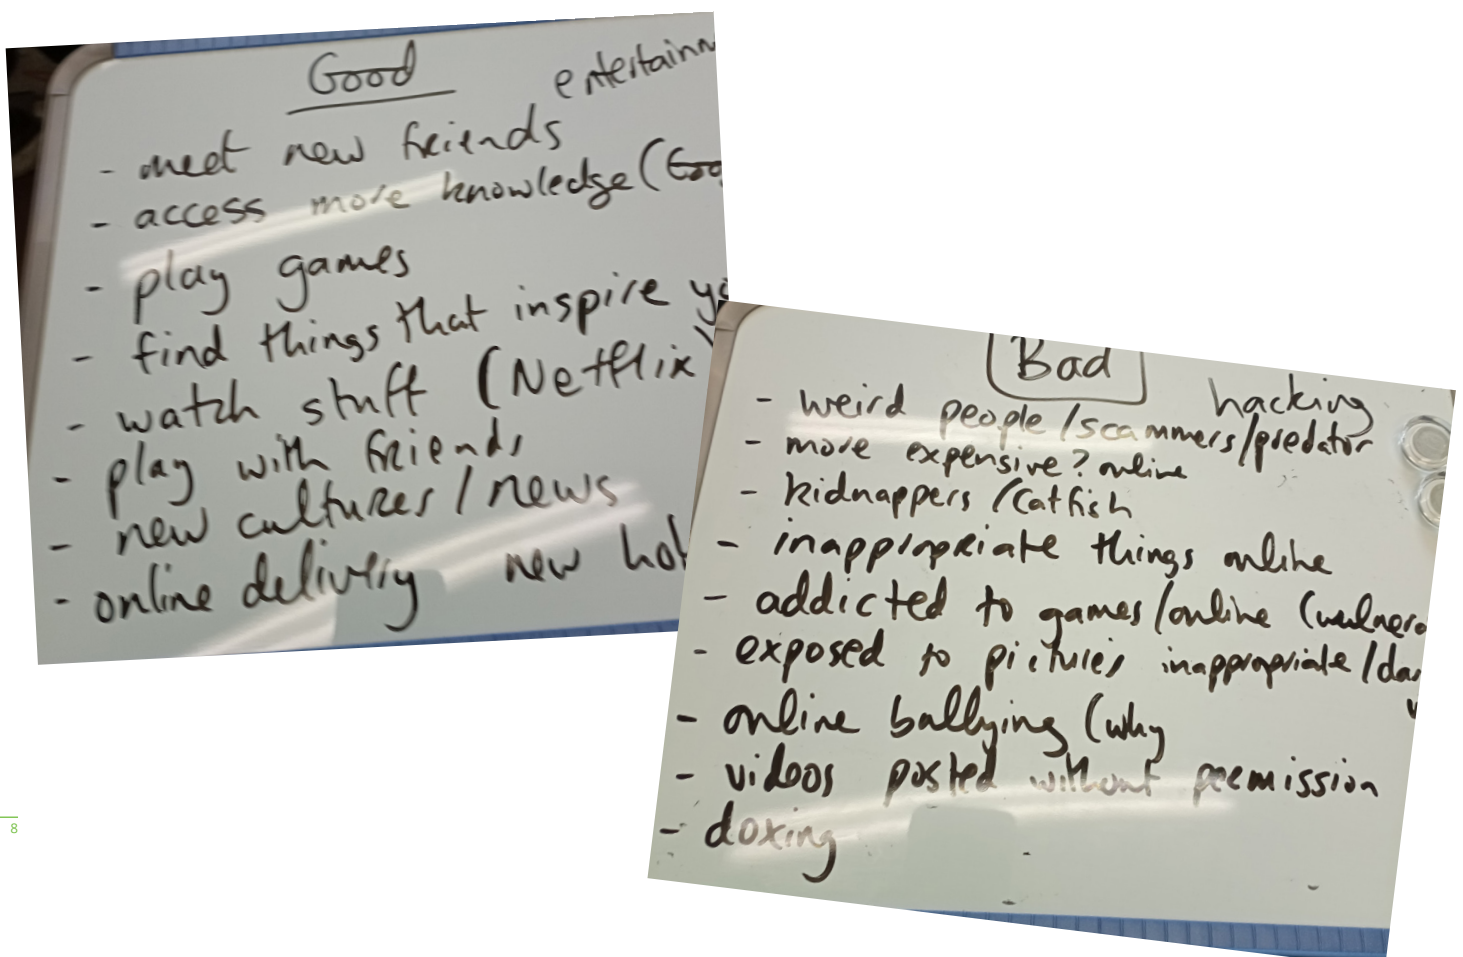 Good
entertainm
- meet new friends
- access more knowledge (Goo
- play games
- find things that inspire yo
- watch stuff (Netflix)
- play with friends
- new cultures/news
- online delivery new hob
Bad
hacking
- weird people/scammers/predator
- more expensive? online
- kidnappers/Catfish
- inappropriate things online
- addicted to games/online (vulnera
- exposed to pictures inappropriate/da
- online bullying (why
- videos posted without permission
- doxing
8